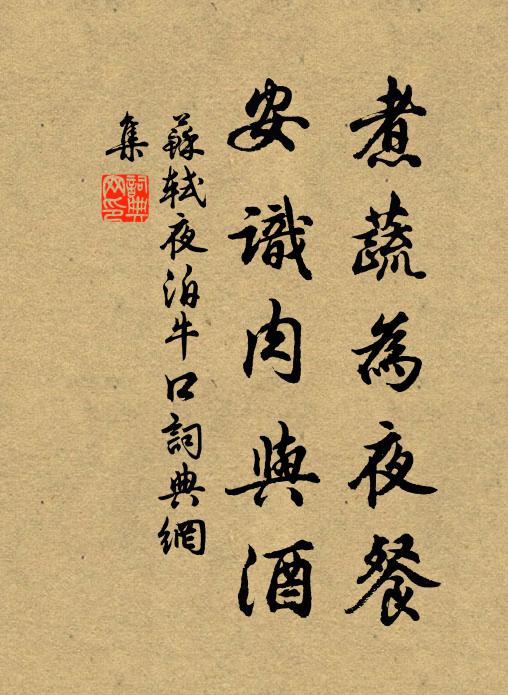 煮蔬為夜餐
安識肉與酒
蘇軾夜泊牛口詞典網
集
詞典網印